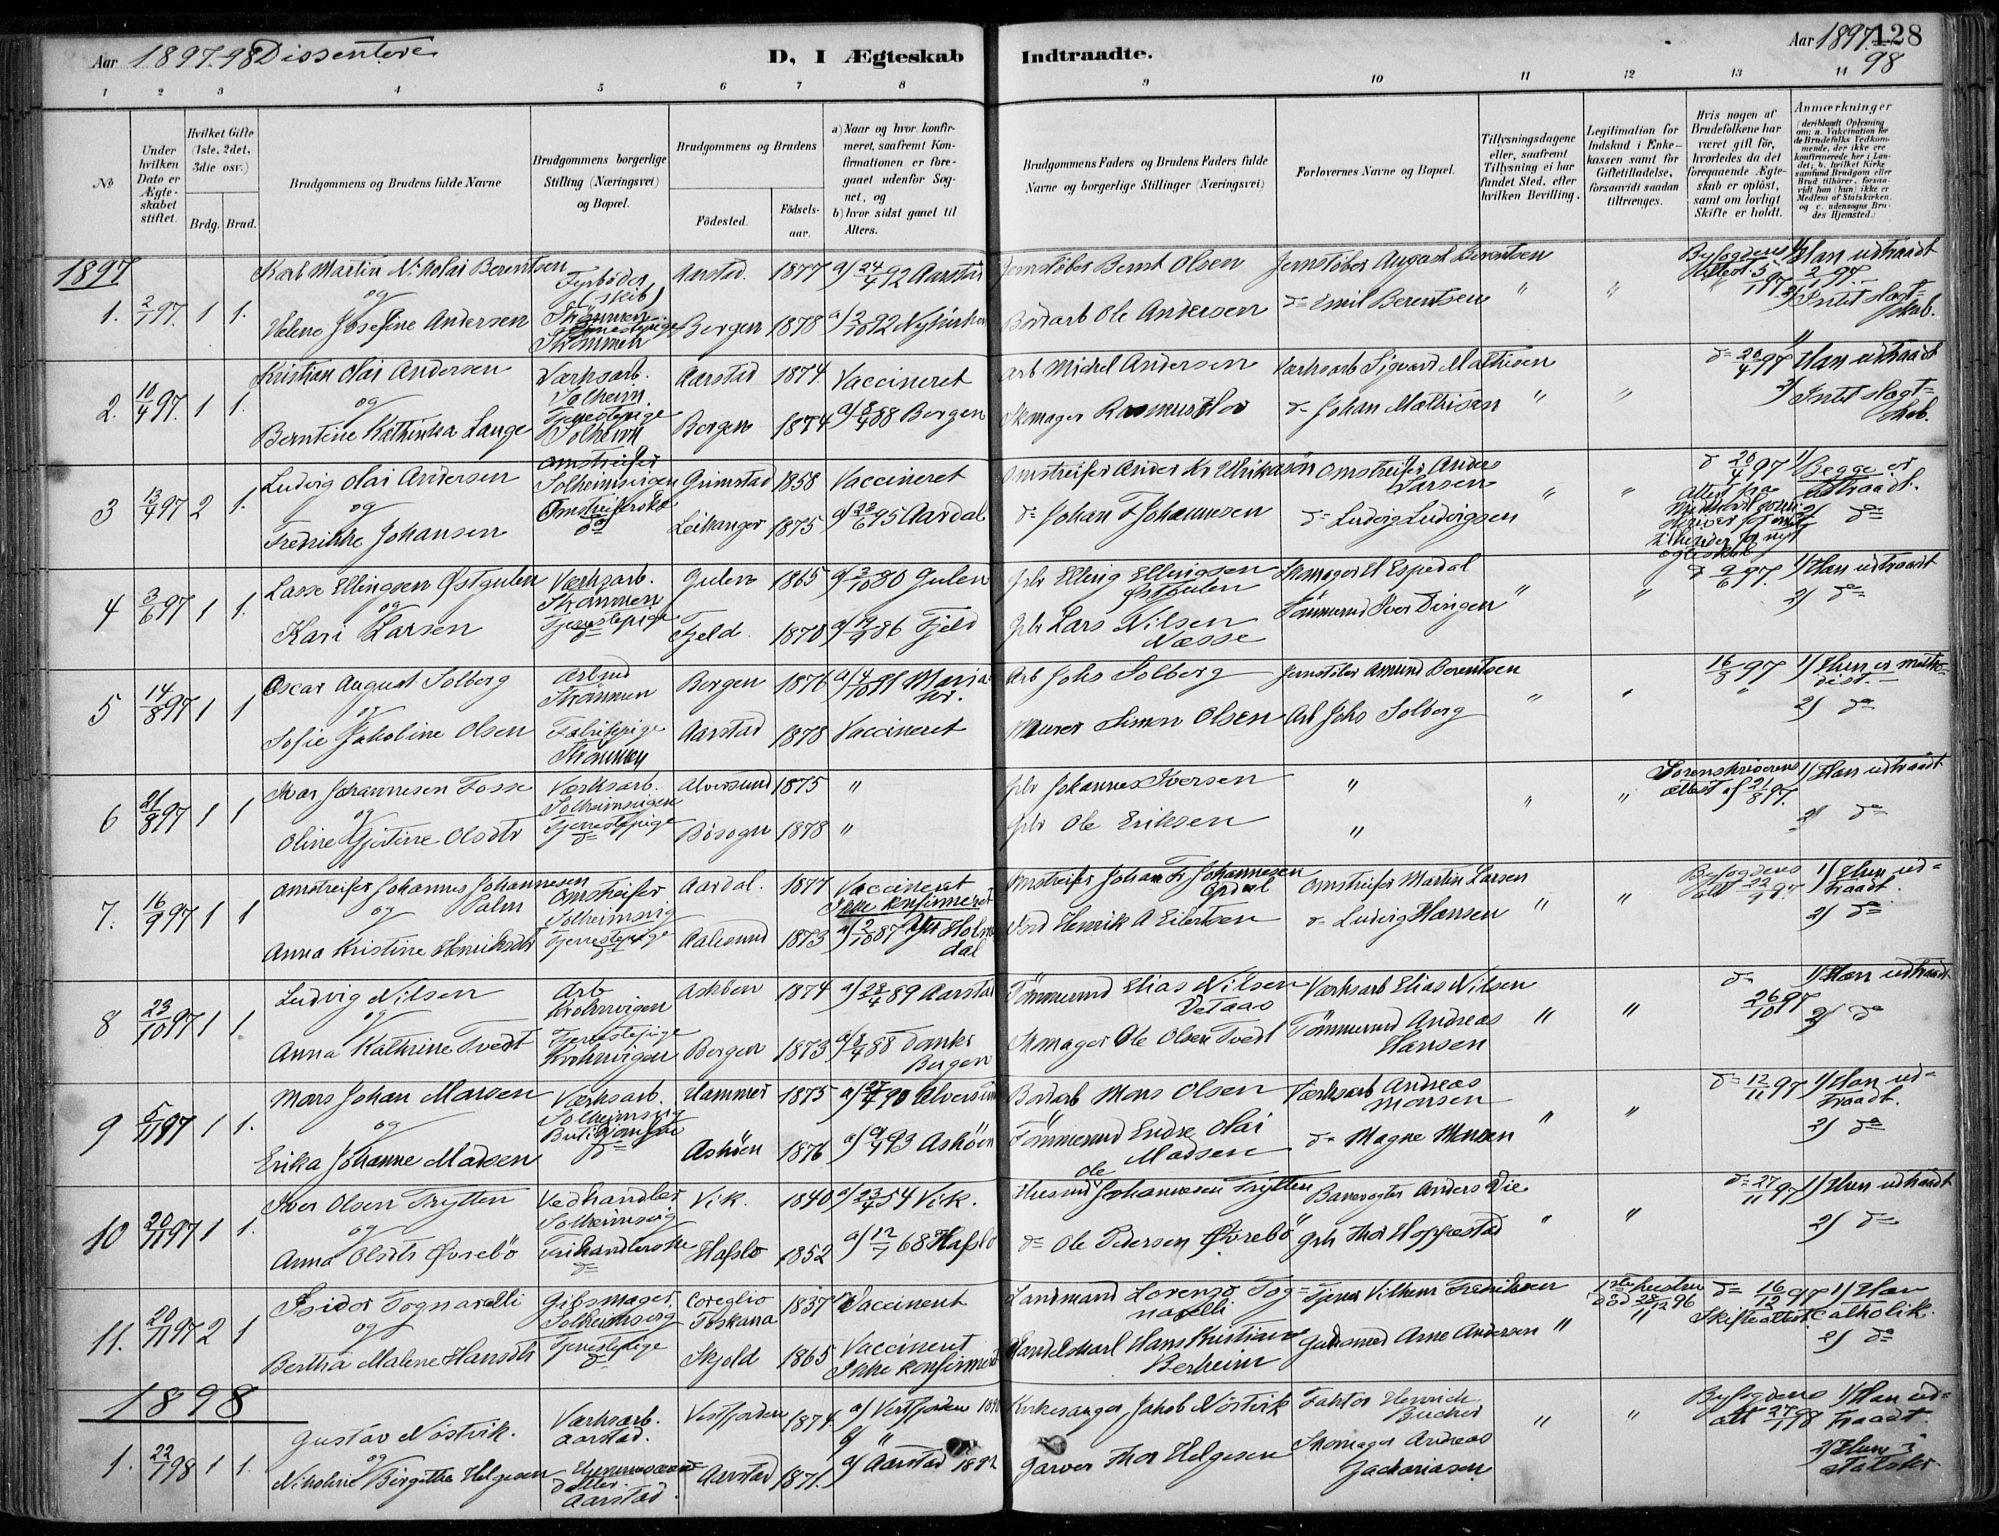 Aar 1897-98 Dissentere
D, I Ægteskab Indtraadte.
Aar 1897 128
98
1 2 3 4 5 6 7 8 9 10 11 12 13 14
No
Under hvilken Dato er Ægteskabet stiftet.
Hvilket Gifte (1ste, 2det, 3die osv.)
Brdg. Brud.
Brudgommens og Brudens fulde Navne
Brudgommens borgerlige Stilling (Næringsvei) og Bopæl.
Brudgommens og Brudens
Födested. Födsels-aar.
a) Naar og hvor konfirmeret, saafremt Konfirmationen er foregaaet udenfor Sognet, og
b) hvor sidst gaaet til Alters.
Brudgommens Faders og Brudens Faders fulde Navne og borgerlige Stillinger (Næringsvei)
Forlovernes Navne og Bopæl.
Tillysningsdagene eller, saafremt Tillysning ei har fundet Sted, efter hvilken Bevilling.
Legitimation for Indskud i Enkekassen samt for Giftetilladelse, forsaavidt saadan tiltrænges.
Hvis nogen af Brudefolkene har været gift før, hvorledes da det foregaaende Ægteskab er opløst, samt om lovligt Skifte er holdt.
Anmærkninger
1897
1. 2/1 97. 1 1. Karl Martin Nikolai Berentsen
og
Valene Josefine Andersen
Fyrbøder (skib) Strømmen
Tjenestepige Strømmen
Aarstad. 1877 a) 24/4 92 Aarstad
Bergen 1878 a) 2/10 92 Nykirken
Jernstøber Bernt Olsen
Bordarb Ole Andersen
Jernstøber August Berentsen
do Emil Berentsen
" "
Byfogdens Attest 5/1 97
1/ Han udtraadt 2/1 97.
2/ Intet Slægtskab.
2. 10/4 97. 1 1. Kristian Olai Andersen
og
Berntine Kathinka Lange
Værksarb. Solheim.
Tjenestepige Solheim
Aarstad 1874 Vaccineret
Bergen 1874 a) 8/4 88 Bergen
Arb Michel Andersen
Skomager Rasmus Hov
Værksarb Sigvard Mathisen
do Johan Mathisen
" "
do 20/4 97
1/ Han udtraadt
2/ Intet Slægtskab.
3 13/4 97 2 1. Ludvig Olai Andersen
og
Fredrikke Johansen
Omstreifer Solheimsvigen
Omstreiferske do
Grimstad 1858 Vaccineret
Leikanger 1875 a) 23/6 95 Aardal
Omstreifer Anders Kr Ulriksøn
do Johan F Johannesen
Omstreifer Anders Larsen
do Ludvig Ludvigsen
" "
do 20/4 97
1/ Begge er udtraadt.
2/ do
4 3/6 97 1 1. Lasse Ellingsen Østgulen
og
Kari Larsen
Værksarb. Strømmen
Tjenestepige do
Gulen 1865 a) 3/10 80 Gulen
Fjeld. 1870 a) 19/9 86 Fjeld
Gbr Elling Ellingsen Østgulen
Gbr Lars Nilsen Næsse
Skomager H Espedal
Tømmermd Iver Dingen
" "
do 9/6 97.
1/ Han udtraadt
2/ do
5 14/8 97 1 1 Oscar August Solberg
og
Sofie Jakobine Olsen
Arbmd Strømmen
Fabrikpige Strømmen
Bergen 1876 a) 4/10 91 Mariakr.
Aarstad 1878 Vaccineret
Arb Johs Solberg
Murer Simon Olsen
Jernstøber Amund Berentsen
Arb Johs Solberg
" "
16/8 97
1/ Hun er methodist.
2/ do
6 21/8 97 1 1 Ivar Johannesen Fosse
og
Oline Gjertine Olsdtr
Værksarb. Solheimsvigen
Tjenestepige do
Alversund 1875 "
Bösogn 1878 "
Gbr Johannes Iversen
Gbr Ole Eriksen
"
"
" "
Sorenskriverens Attest af 21/8 97.
1/ Han udtraadt
2/ do
7. 16/9 97 1 1 Omstreifer Johannes Johannesen Palm
og
Anna Kristine Henriksdtr
Omstreifer Solheimsvig
Tjenestepige do
Aardal. 1877 Vaccineret Ikke konfirmeret
Aalesund 1873 a) 2/10 87 Ytr Holmedal
Omstreifer Johan Fr Johannesen Opdal
Nord Henrik A Eilertsen
Omstreifer Martin Larsen
do Ludvig Hansen
" "
Byfogdens att 22/9 97.
1/ Hun udtraadt.
2/ do
8 23/10 97 1 1. Ludvig Nilsen
og
Anna Kathrine Tvedt
Arb Krohnvigen
Tjenestepige Krohnvigen
Askøen 1874 a) 28/4 89 Aarstad
Bergen 1873 a) 8/4 88 Domkr Bergen
Tømmermd Elias Nilsen Vetaas
Skomager Ole Olsen Tvedt
Værksarb Elias Nilsen
Tømmermd Andreas Hansen
" "
do 26/10 97
1/ Han udtraadt
2/ do
9 5/11 97 1 1. Mons Johan Monsen
og
Erika Johanne Madsen
Værksarb. Solheimsvig
Butikjomfru do
Hammer 1875 a) 27/4 90 Alversund
Askøen 1876 a) 9/4 93 Askøen
Bordarb Mons Olsen
Tømmermd Endre Olai Madsen
Værksarb Andreas Monsen
do Magne Monsen
" "
do 12/11 97
1/ Han udtraadt.
2/ do
10 20/11 97 1 1. Iver Olsen Trytten
og
Anna Olsdtr Øvrebö
Vedhandler Solheimsvig
Frihandlerske do
Vik. 1840 a) 23/4 54 Vik.
Hafslo 1852 a) 12/7 68 Hafslo
Husmd Ole Johannesen Trytten
do Ole Pedersen Øvrebö
Banevogter Anders Vie
Gbr Thor Hoppestad
" "
do 27/11 97
1/ Hun udtraadt
2/ do
11. 20/11 97 2 1 Isidor Tognarelli
og
Bertha Malene Hansdtr
Gibsmager. Solheimsvig
Tjenestepige do
Coreglio Toskana 1837 Vaccineret
Skjold 1865 Vaccineret Ikke konfirmeret
Landmand Lorenzo Tognarelli
Handelskarl Hans Kristian Berheim
Tjener Vilhelm Fredriksen
Guldsmed Arne Andersen
"
1ste hustru död 28/12 96
do 16/12 97 Skifteattest
1/ Han Catholik.
2/ do
1898
1. 22/1 98 1 1 Gustav Nöstvik.
og
Nikoline Birgithe Helgesen
Værksarb. Aarstad.
datter Aarstad.
Vestfjorden 1874. a) Vestfjorden 1890
b) "
Aarstad 1871. a) Aarstad 1882
Kirkesanger Jakob Nöstvik
Garver Thor Helgesen
Faktor Henrich Bucher
Skomager Andreas Zachariasen
" "
Byfogdens att 27/1 98
1/ Han udtraadt.
2/ Hun i statskr